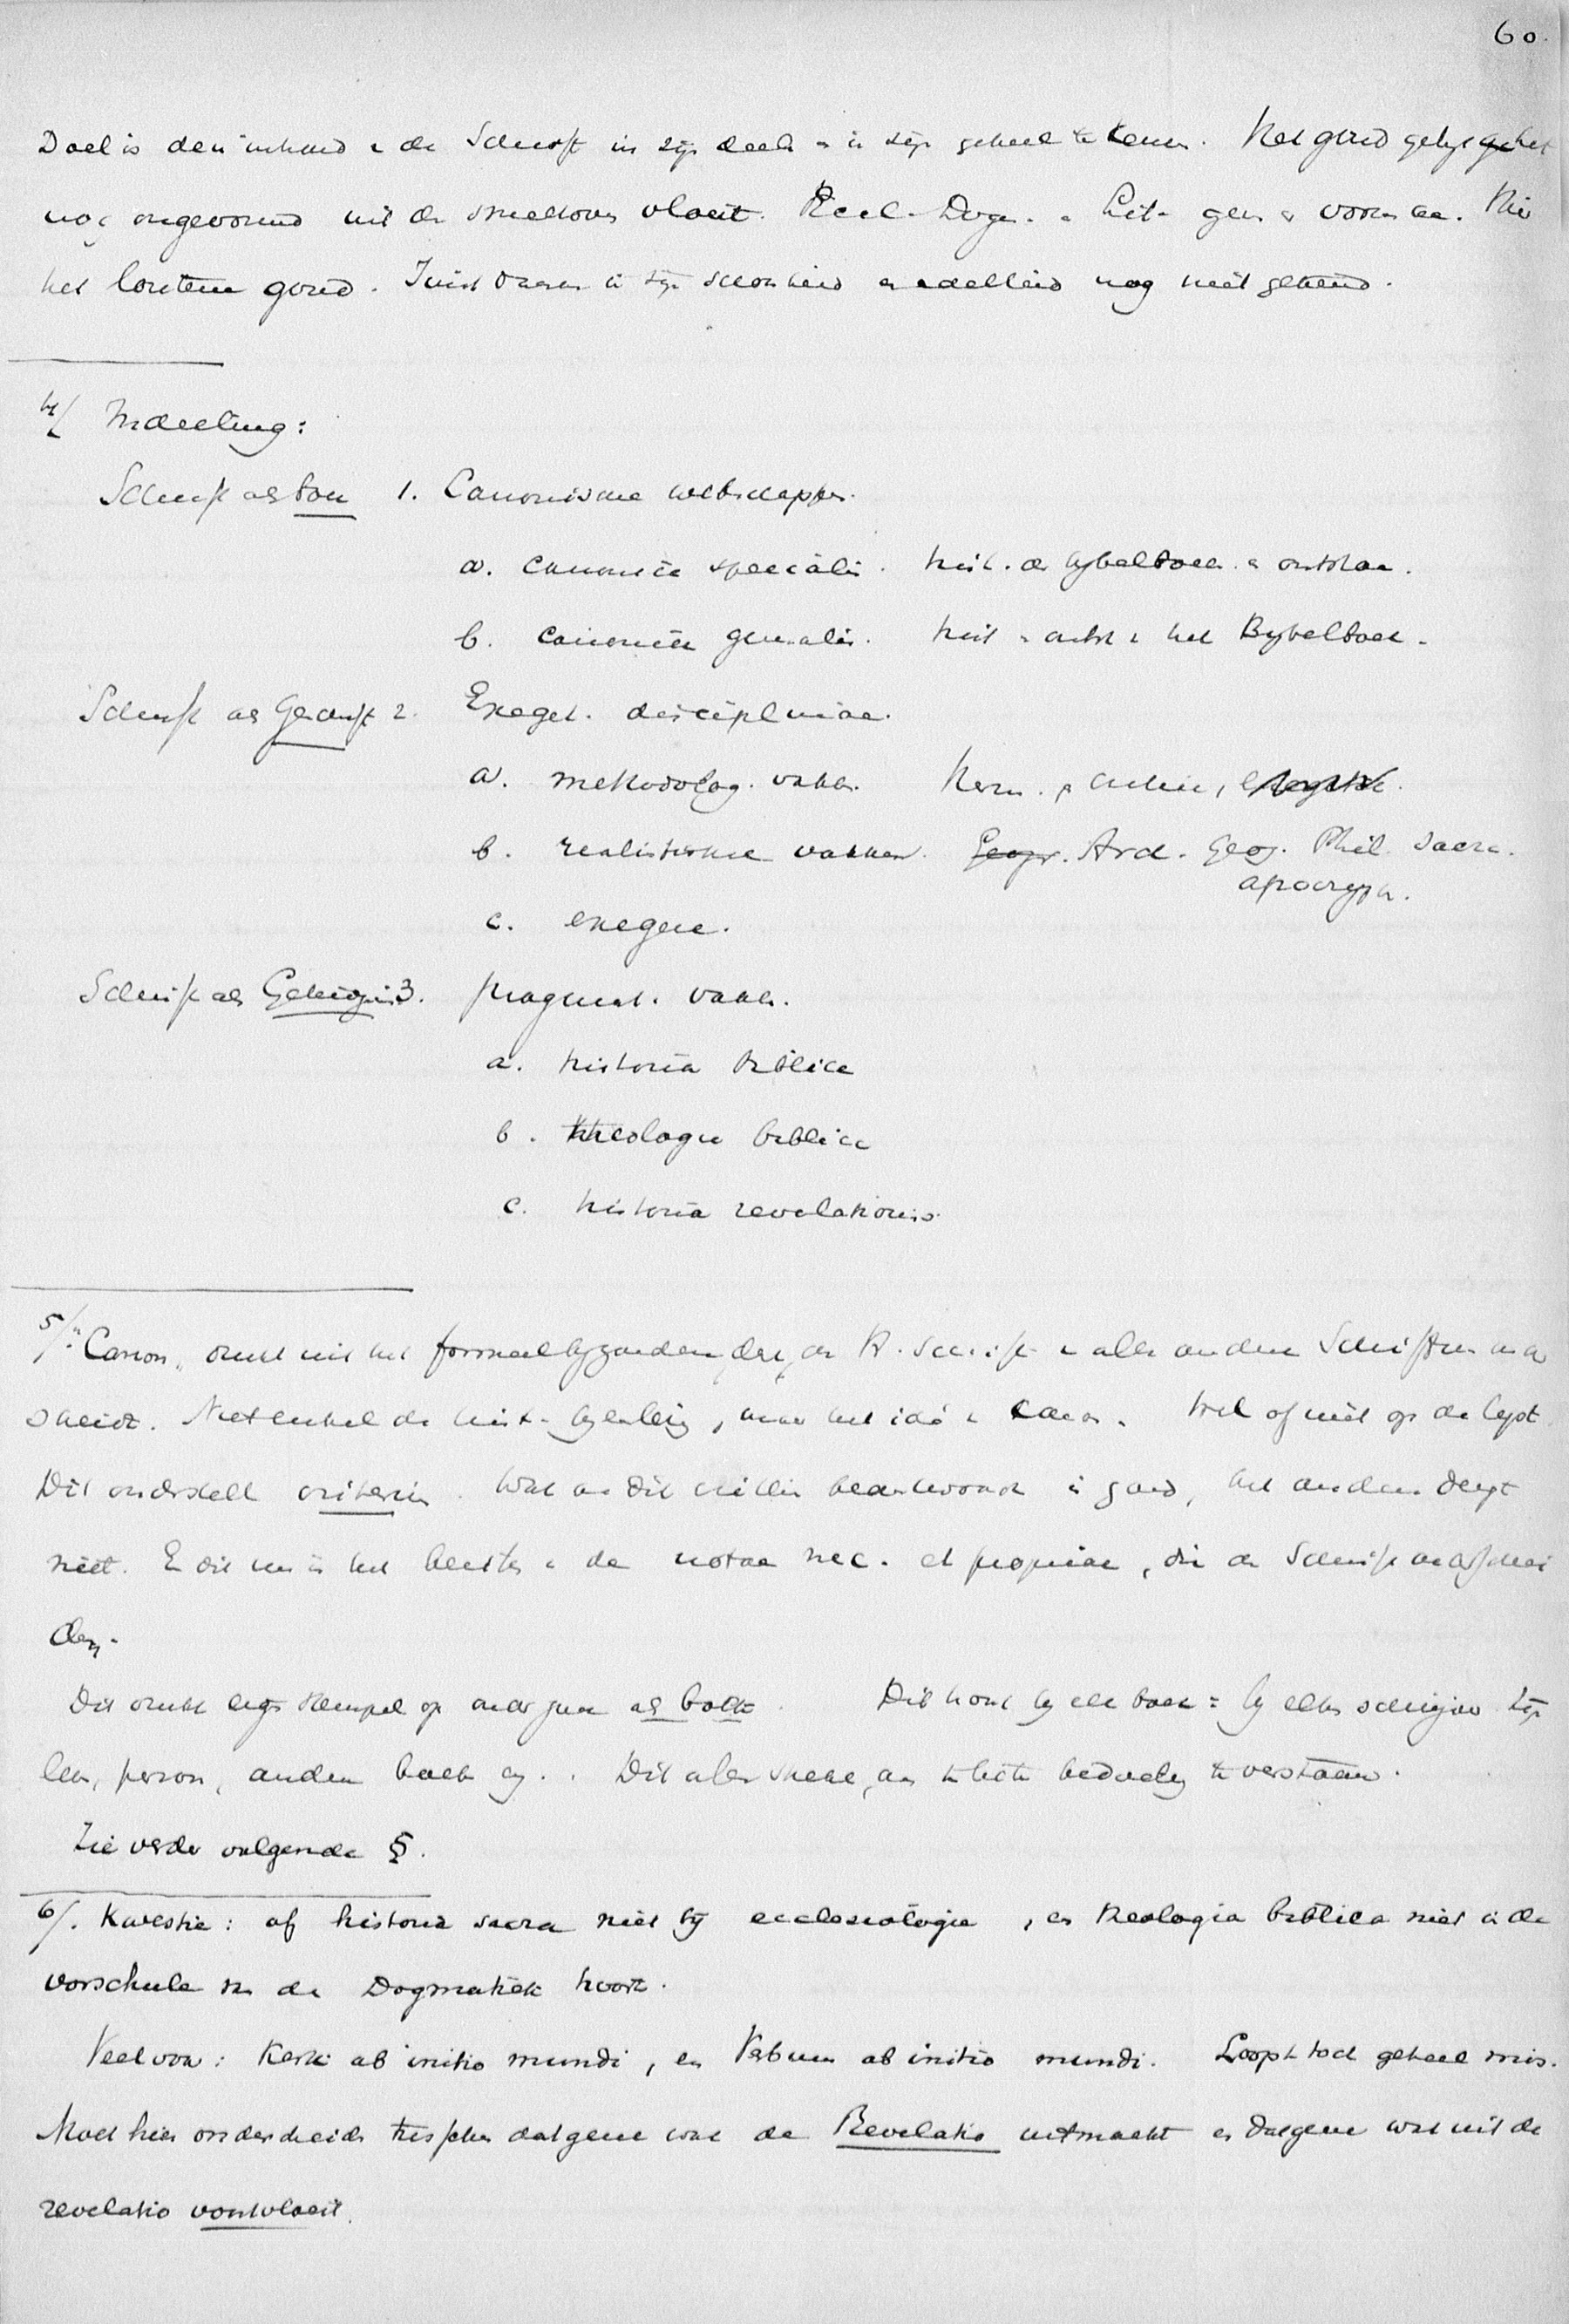 60.
Doel is den inhoud v de Schrift in zijn deelen en in zijn geheel te kennen. Het goud gelijk het
nog ongevormd uit de smeltoven vloeit. Eccl. Dogm. en Lit. geven er vorm aan. Hier
het loutere goud. Juist daarom in zijn schoonheid en edelheid nog niet gekend.
4/ Indeeling:
Schrift als boek 1. Canonische wetenschappen.
a. canoniek specialis. hist. de bijbelboek. v ontstaan.
b. canoniek generalis. hist v ontst v het Bijbelboek.
Schrift als Geschrift 2. Exeget. disciplinae.
a. methodolog. vakken. Herm. critiek,
b. realistische vakken. Geogr. Arch. Geog. Phil. sacra.
apocryph.
c. exegese.
Schrift als Getuigenis 3. pragmat. vakken.
a. historia biblica
b. theologia biblica
c. historia revelationis.
5/. "Canon" drukt uit het formeel bijzondere, dat de H. Schrift v alle andere Schriften
scheidt. Niet enkel de lijst, maar het idé v canon. Wel of niet op de lijst.
Dit onderstelt criterium. Wat aan dit criterium beantwoordt is goed, het andere deugt
niet. En dit nu is het bezit v de notae nec. et propriae, die de Schrift onderschei
den.
Dit drukt eigen stempel op onderzoek als boek. Dit komt bij elk boek: bij elken schrijver zijn
leven, persoon, andere boeken enz. Dit alles strekke om te beter bedoeling te verstaan.
Zie verder volgende §.
6/. Kwestie: of historia sacra niet bij ecclesiologie, en theologia biblica niet in de
vorschule van de Dogmatiek hoort.
Veel voor: Kerk ab initio mundi, en Verbum ab initio mundi. Loopt toch geheel mis.
Moet hier onderscheiden tusschen datgene wat de Revelatio uitmaakt en datgene wat uit de
revelatio voortvloeit.